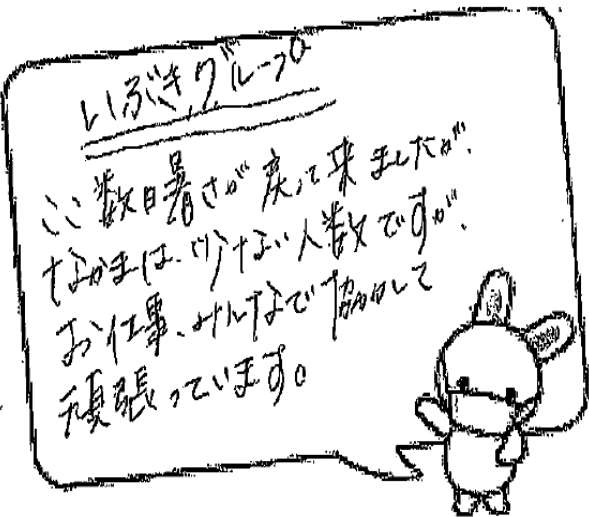 いぶきグループ
ここ数日暑さが戻って来ましたが、
なかまは、少ない人数ですが、
お仕事、みんなで協力して
頑張っています。